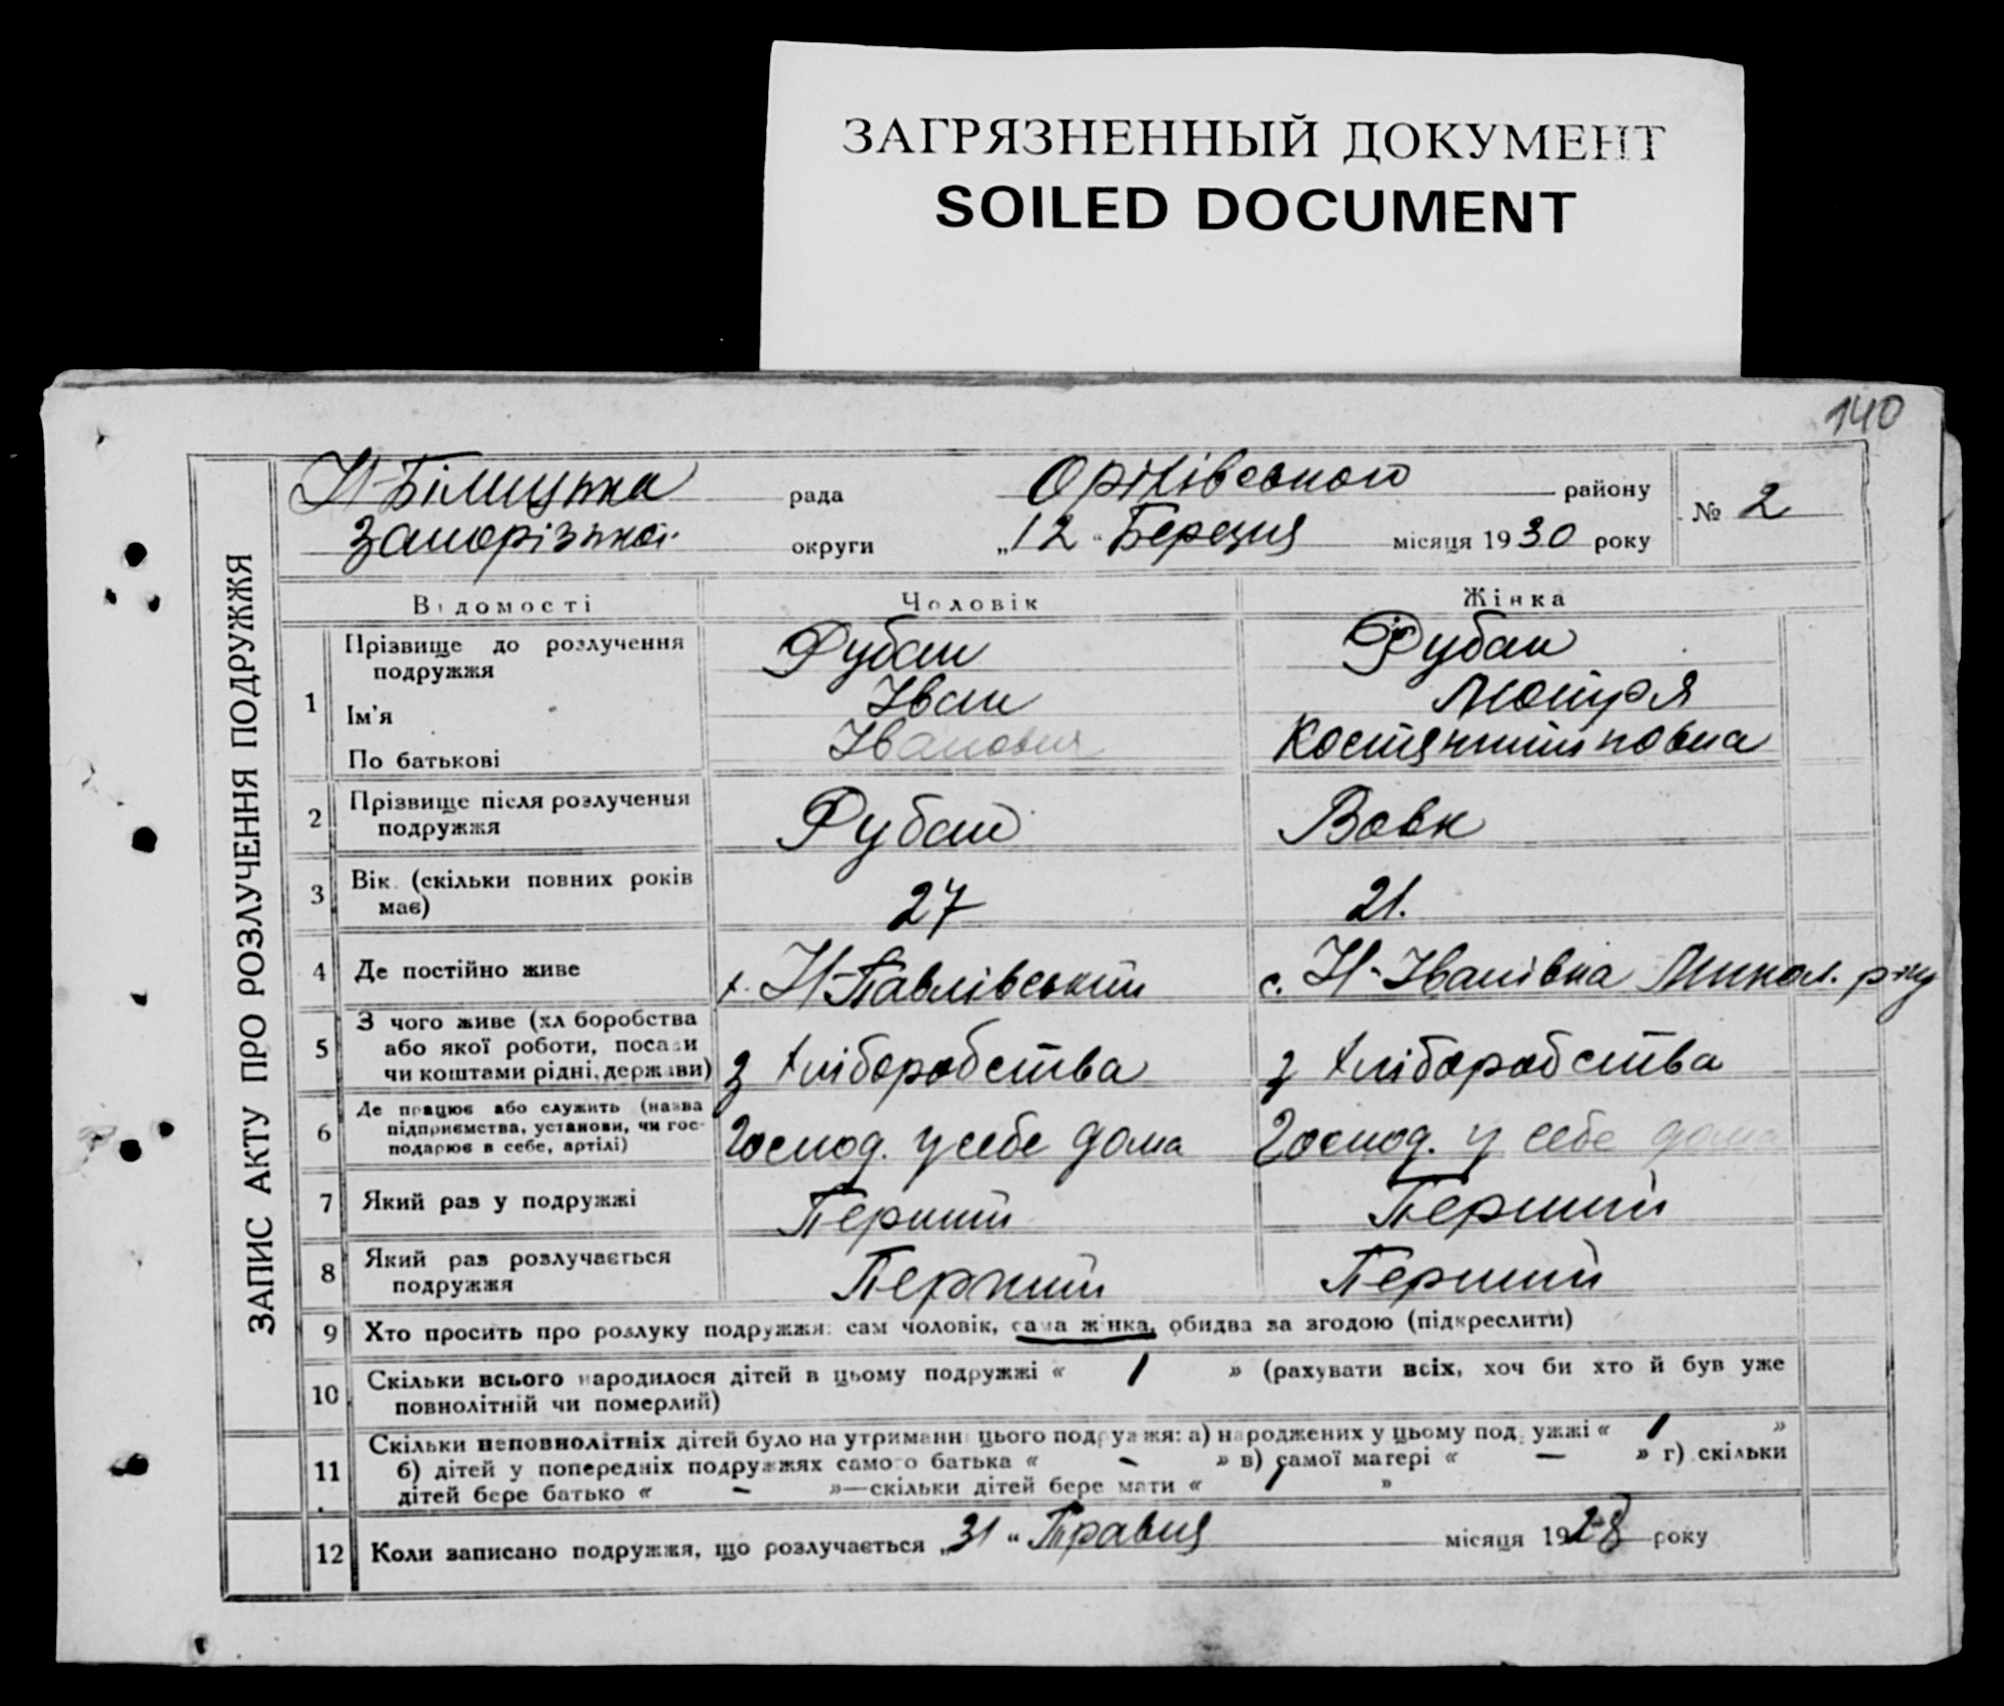 ЗАГРЯЗНЕННЫЙ ДОКУМЕНТ
SOILED DOCUMENT
140
ЗАПИС АКТУ ПРО РОЗЛУЧЕННЯ ПОДРУЖЖЯ
рада Оріхівського району № 2
Запорізької округи „12“ Березня місяця 1930 року
Відомості Чоловік Жінка
1 Прізвище до розлучення подружжя Рубан Рубан
Ім'я Іван Мотря
По батькові Іванович Костянтиновна
2 Прізвище після розлучення подружжя Рубан Вовк
3 Вік (скільки повних років має) 27 21.
4 Де постійно живе х. Н-Павлівський с. Н-Іванівка Микол. р-ну
5 З чого живе (хліборобства або якої роботи, посади чи коштами рідні, держави) з хліборобства з хліборобства
6 Де працює або служить (назва підприємства, установи, чи господарює в себе, артілі) Господ. у себе дома Господ. у себе дома
7 Який раз у подружжі Перший Перший
8 Який раз розлучається подружжя Перший Перший
9 Хто просить про розлуку подружжя: сам чоловік, сама жінка, обидва за згодою (підкреслити)
10 Скільки всього народилося дітей в цьому подружжі « 1 » (рахувати всіх, хоч би хто й був уже
повнолітній чи померлий)
11 Скільки неповнолітніх дітей було на утриманні цього подружжя: а) народжених у цьому подружжі « 1 »
б) дітей у попередніх подружжях самого батька « - » в) самої матері « — » г) скільки
дітей бере батько « - »—скільки дітей бере мати « 1 »
12 Коли записано подружжя, що розлучається „31“ Травня місяця 1928 року